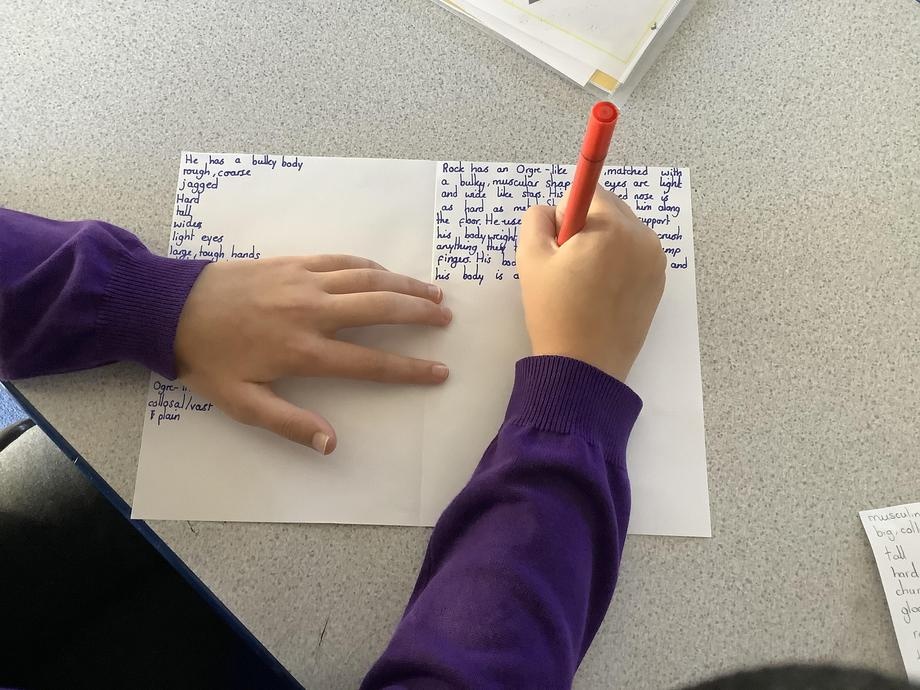 He has a bulky body
rough, coarse
jagged
Hard
tall
wides
light eyes
large, tough hands
Ogre-li
collosal/vast
plain
Rock has an Orgre-like matched with
a bulky, muscular shap eyes are light
and wide like stars. His ed nose is
as hard as met him along
the floor. He use support
his body weight crush
anything they
fingers. His bod and
his body is a
musculin
big, coll
tall
hard
chu
glo